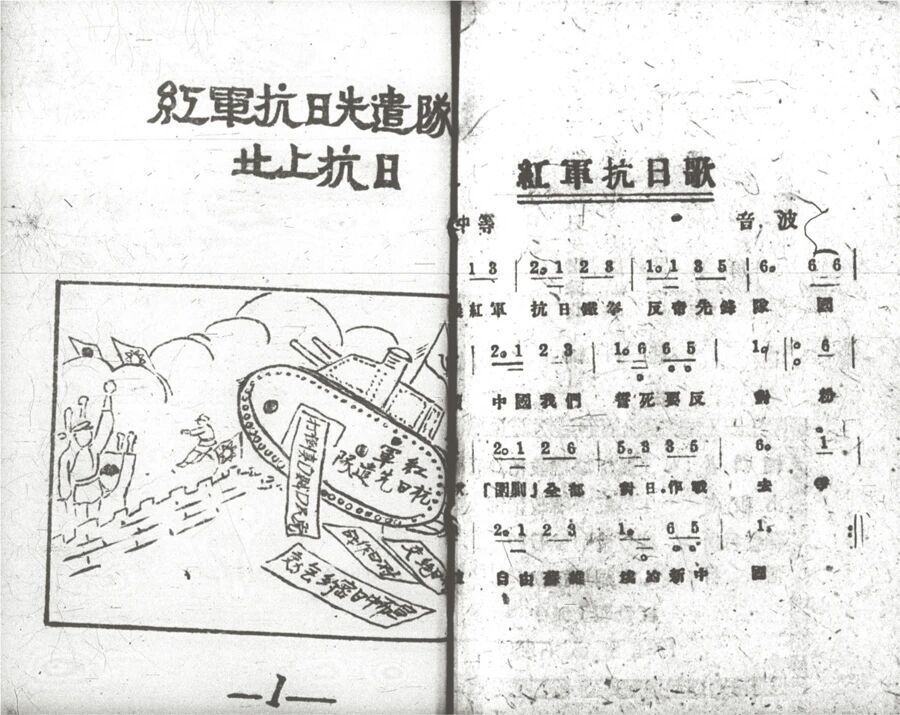 紅軍抗日先遣隊
北上抗日
紅軍
抗日先遣隊
—1—
紅軍抗日歌
中等
音波
1 3 | 2. 1 2 3 | 1. 1 3 5 | 6. 6 6 |
紅軍 抗日鐵拳 反帝先鋒 隊 國
| 2. 1 2 3 | 1. 6 6 5 | 1. 6 |
中國我們 誓死要反 對 粉
| 2. 1 2 6 | 5. 3 3 5 | 6. 1 |
「圍剿」全部 對日作戰 去 爭
| 2. 1 2 3 | 1. 6 5 | 1.
自由蘇維 埃的新中 國